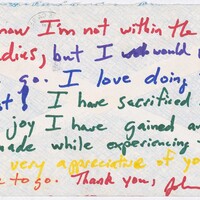 now I'm not within the
dies, but I would
go. I love doing
t! I have sacrificed
joy I have gained a
made while experiencing
very appreciative of yo
e to go. Thank you, John